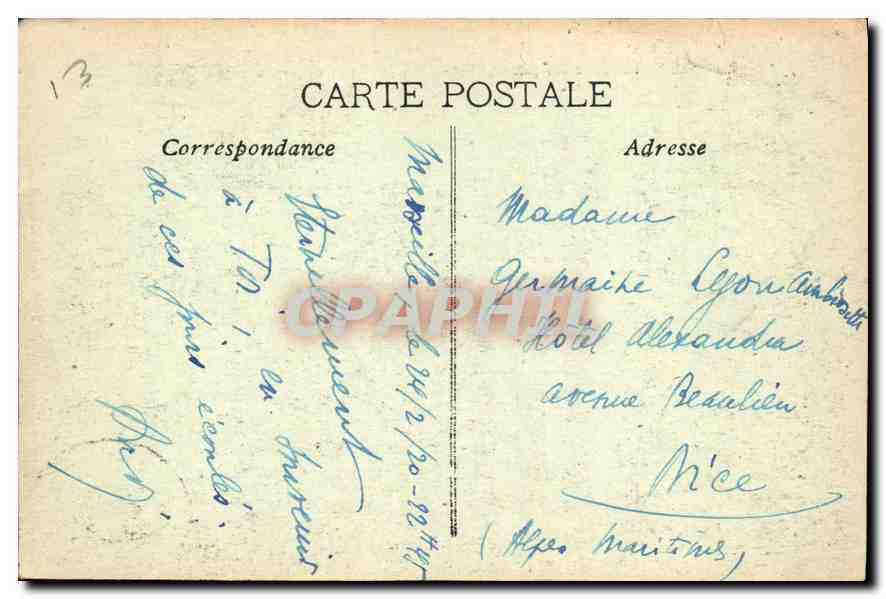 13
CARTE POSTALE
Correspondance
Adresse
Marseille le 24/2/20 - 22H45
Éternellement
à Toi, en souvenir
de ces jours écoulés.
Madame
Germaine Lyon Ambrosetti
Hôtel Alexandra
Avenue Beaulieu
Nice
(Alpes Maritimes)
CPAPHIL